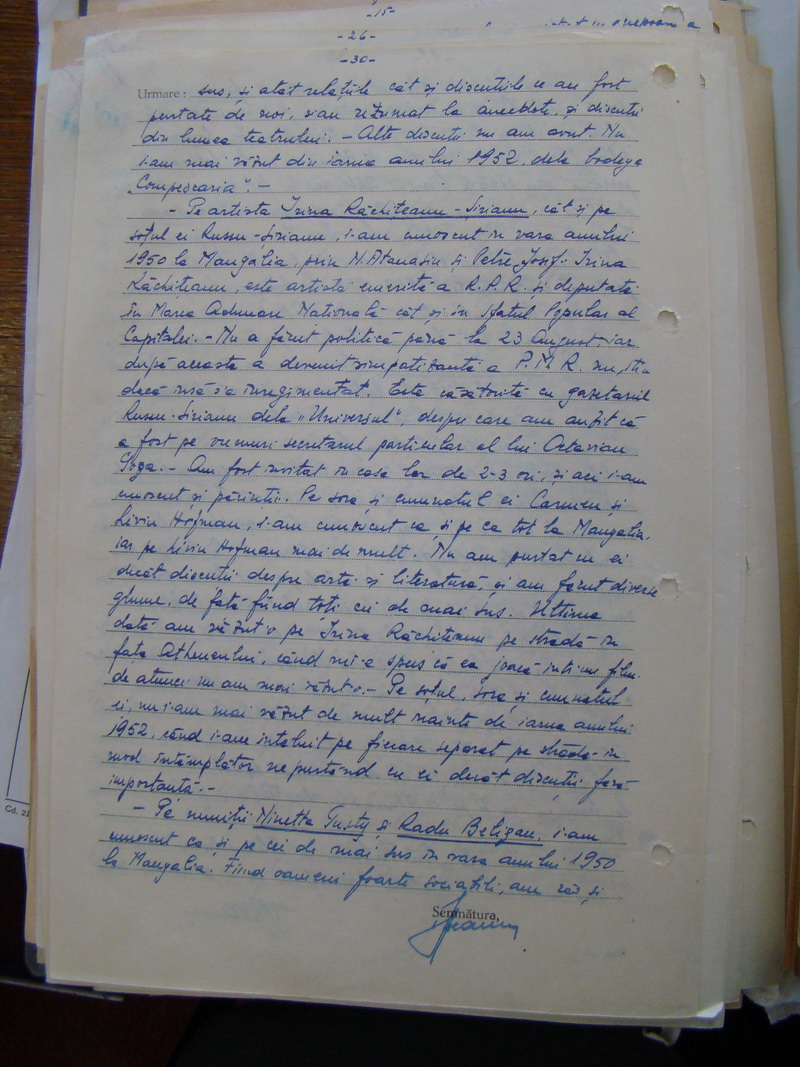 -15-
-26-
-30-
Urmare: sus, și atât relațiile cât și discuțiile ce au fost
purtate de noi, s'au rezumat la anecdote, și discuții
din lumea teatrului. - Alte discuții nu am avut. Nu
i-am mai văzut din iarna anului 1952, dela bodega
„Compescaria". -
- Pe artista Irina Răchițeanu-Șirianu, cât și pe
soțul ei Russu-Șirianu, i-am cunoscut în vara anului
1950 la Mangalia, prin N. Atanasiu și Petre Iosif. Irina
Răchițeanu, este artistă emerită a R.P.R. și deputată
în Marea Adunare Națională cât și în Sfatul Popular al
Capitalei. - Nu a făcut politică până la 23 August iar
după aceasta a devenit simpatizantă a P.M.R. nu știu
dacă însă s'a înregimentat. Este căsătorită cu gazetarul
Russu-Șirianu dela „Universul", despre care am auzit că
a fost pe vremuri secretarul particular al lui Octavian
Goga. - Am fost invitat în casa lor de 2-3 ori, și aci i-am
cunoscut și părinții. Pe sora și cumnatul ei Carmen și
Liviu Hofman, i-am cunoscut ca și pe ea tot la Mangalia,
iar pe Liviu Hofman mai de mult. Nu am purtat cu ei
decât discuții despre artă și literatură, și am făcut diverse
glume, de față fiind toți cei de mai sus. Ultima
dată am văzut-o pe Irina Răchițeanu pe stradă în
fața Atheneului, când mi-a spus că ea joacă într'un film.
de atunci nu am mai văzut-o. - Pe soțul, sora și cumnatul
ei, nu i-am mai văzut de mult înainte de iarna anului
1952, când i-am întâlnit pe fiecare separat pe stradă în
mod întâmplător nepurtând cu ei decât discuții fără
importanță. -
- Pe numiții Ninetta Gusty și Radu Beligan, i-am
cunoscut ca și pe cei de mai sus în vara anului 1950
la Mangalia. Fiind oameni foarte sociabili, am râs și
Semnătura,
Cd. 21